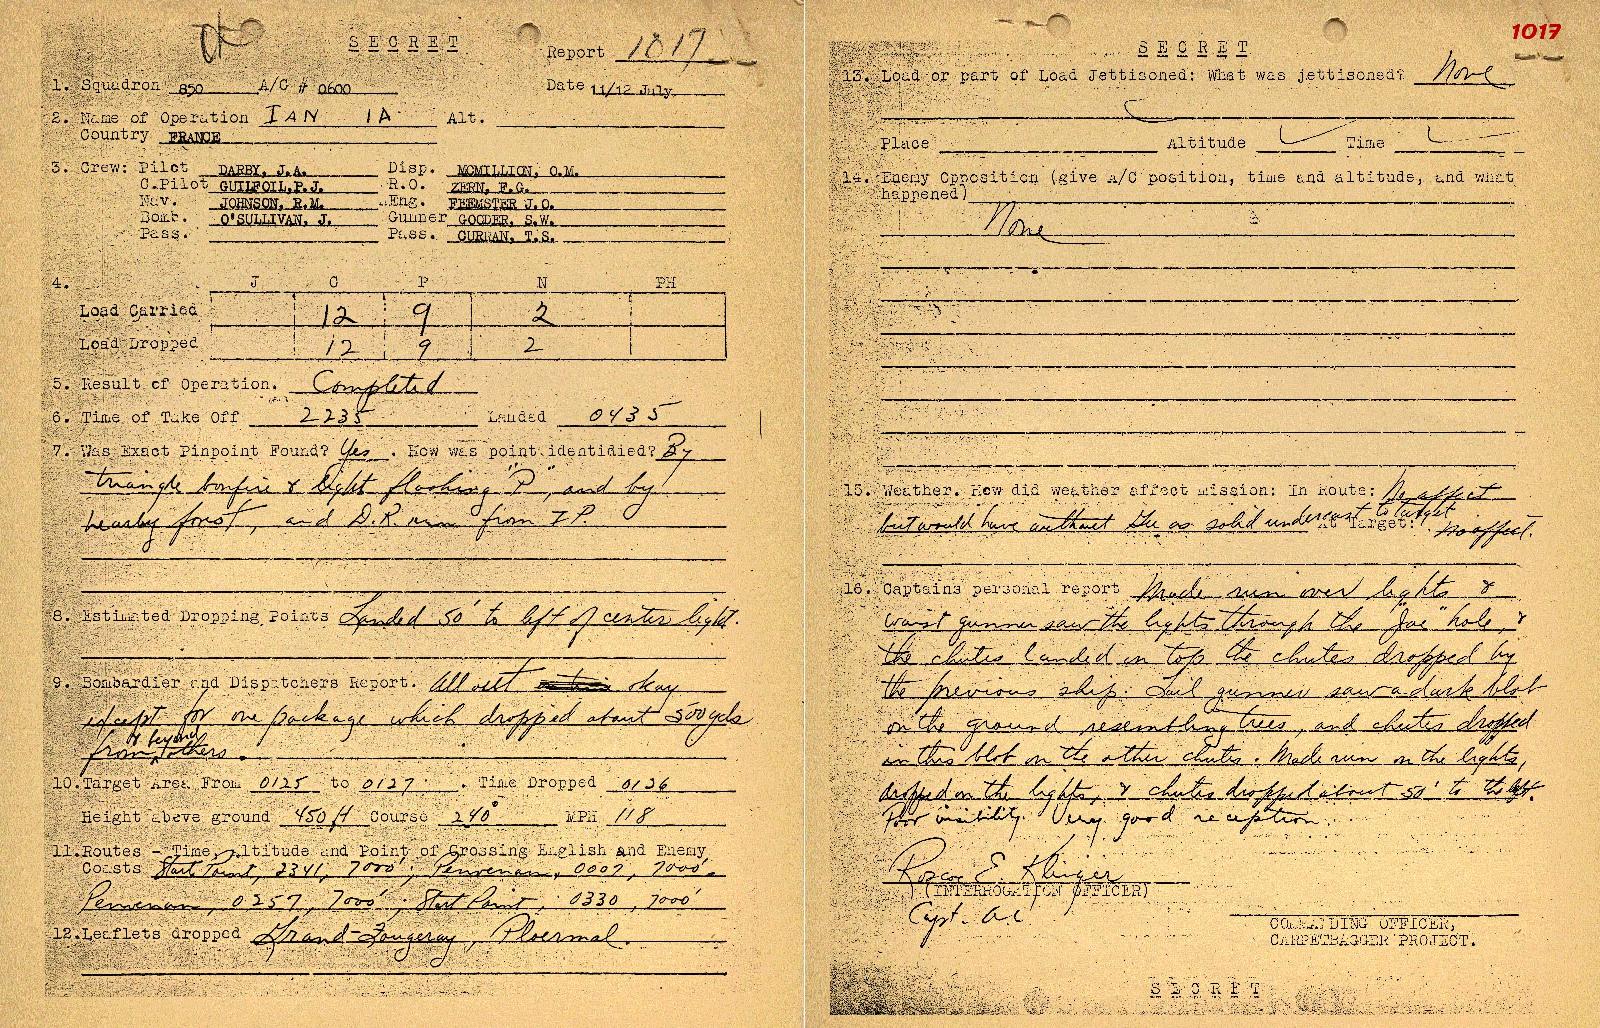 SECRET
Report 1017
1. Squadron 850 A/C # 0600 Date 11/12 July
2. Name of Operation IAN 1A Alt.
Country FRANCE
3. Crew: Pilot DARBY, J.A. Disp. MCMILLION, O.M.
C.Pilot GUILFOIL,P.J. R.O. ZERN, F.G.
Nav. JOHNSON, R.M. Eng. FEEMSTER J.O.
Bomb. O'SULLIVAN, J. Gunner GOODER, S.W.
Pass. Pass. CURRAN, T.S.
4. J C P N PH
Load Carried 12 9 2
Load Dropped 12 9 2
5. Result of Operation. Completed
6. Time of Take Off 2235 Landed 0435
7. Was Exact Pinpoint Found? Yes. How was point identidied? By
triangle bonfire & light flashing "P", and by
nearby forest, and D.R. run from I.P.
8. Estimated Dropping Points Landed 50' to left of center light.
9. Bombardier and Dispatchers Report. All went okay
except for one package which dropped about 500 yds
from & beyond others.
10. Target Area From 0125 to 0127. Time Dropped 0126
Height above ground 450 ft Course 240° MPH 118
11. Routes - Time, Altitude and Point of Crossing English and Enemy
Coasts Start Point, 2341, 7000'; Penvenan, 0007, 7000'.
Penvenan, 0257, 7000'; Start Point, 0330, 7000'
12. Leaflets dropped Grand-Fougeray, Ploermal.
1017
SECRET
13. Load or part of Load Jettisoned: What was jettisoned? None
Place Altitude Time
14. Enemy Opposition (give A/C position, time and altitude, and what
happened)
None
15. Weather. How did weather affect mission: In Route: No affect
but would have without Gee as solid undercast to target At Target: no affect.
16. Captains personal report Made run over lights &
waist gunner saw the lights through the "Joe" hole, &
the chutes landed on top the chutes dropped by
the previous ship. Tail gunner saw a dark blot
on the ground resembling trees, and chutes dropped
in this blot on the other chutes. Made run on the lights,
dropped on the lights, & chutes dropped about 50' to the left.
Poor visibility. Very good reception.
Roscoe E. Klinger
(INTERROGATION OFFICER)
Capt. A.C.
COMMANDING OFFICER,
CARPETBAGGER PROJECT.
SECRET